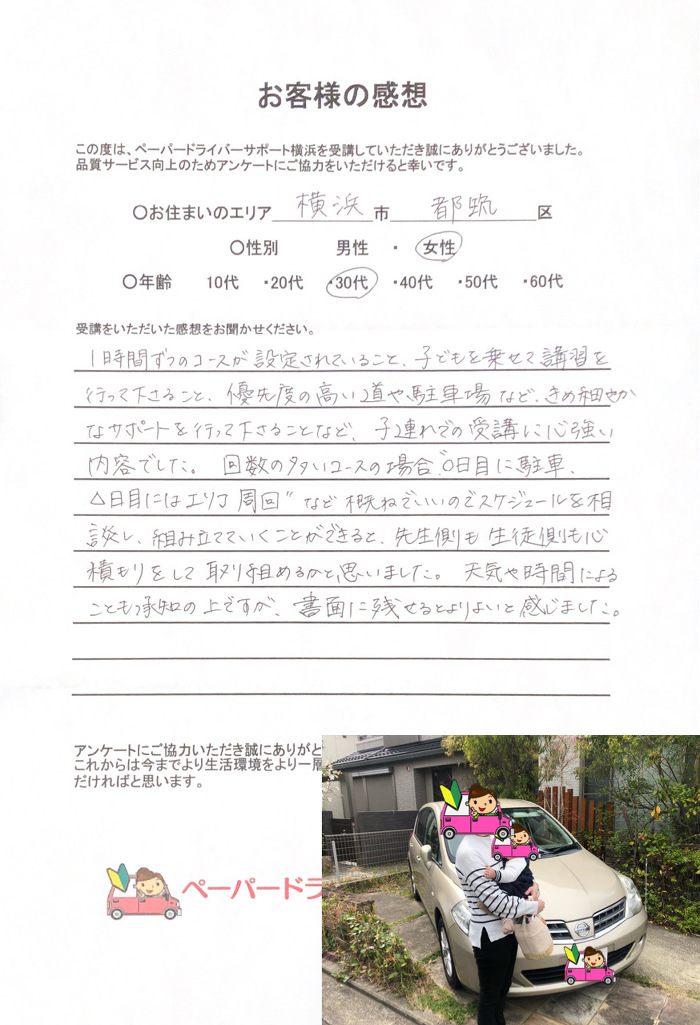 お客様の感想
この度は、ペーパードライバーサポート横浜を受講していただき誠にありがとうございました。
品質サービス向上のためアンケートにご協力をいただけると幸いです。
〇お住まいのエリア 横浜 市 都筑 区
〇性別 男性 ・ 女性
〇年齢 10代 ・20代 ・30代 ・40代 ・50代 ・60代
受講をいただいた感想をお聞かせください。
1時間ずつのコースが設定されていること、子どもを乗せて講習を
行って下さること、優先度の高い道や駐車場など、きめ細やか
なサポートを行って下さることなど、子連れでの受講に心強い
内容でした。 回数の多いコースの場合、"〇日目に駐車、
△日目にはエリア周回" など概ねでいいのでスケジュールを相
談し、組み立てていくことができると、先生側も生徒側も心
積もりをして取り組めるかと思いました。 天気や時間による
ことも承知の上ですが、書面に残せるとよりよいと感じました。
アンケートにご協力いただき誠にありがと
これからは今までより生活環境をより一層
だければと思います。
ペーパードラ